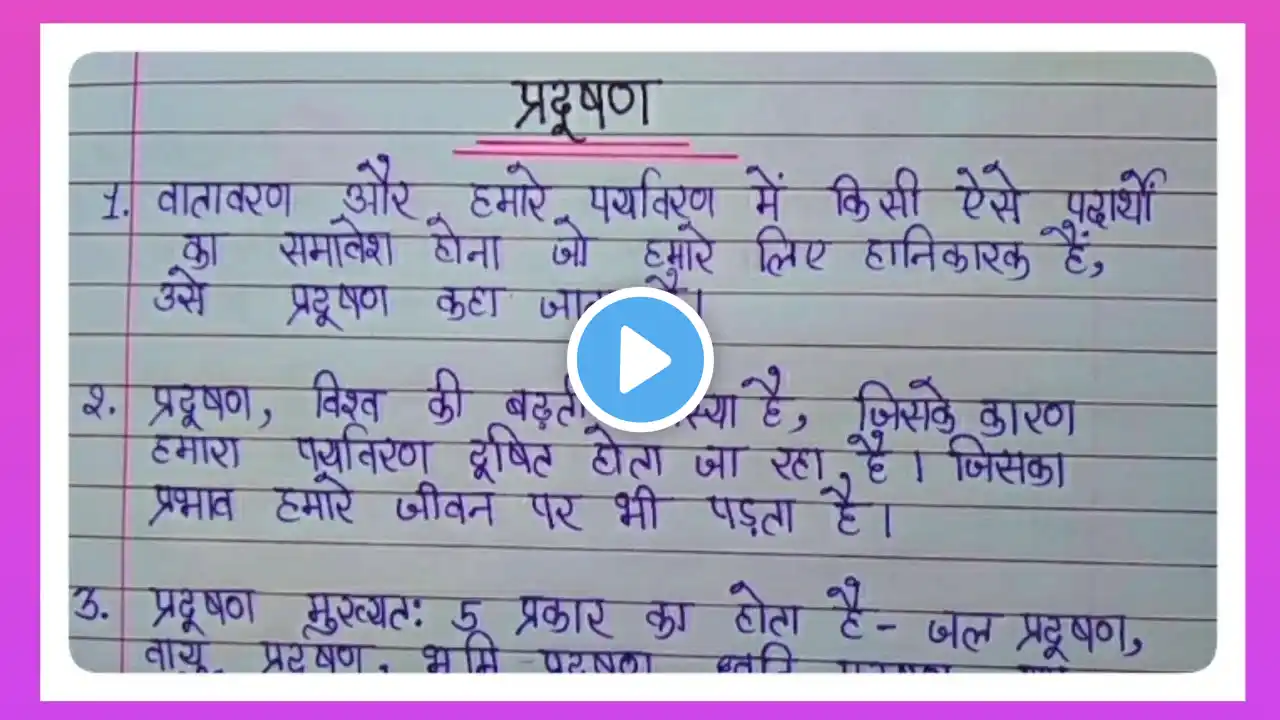 प्रदूषण
1. वातावरण और हमारे पर्यावरण में किसी ऐसे पदार्थों
का समावेश होना जो हमारे लिए हानिकारक हैं,
उसे प्रदूषण कहा है।
२. प्रदूषण, विश्व की बढ़ती है, जिसके कारण
हमारा पर्यावरण दूषित होता जा रहा है। जिसका
प्रभाव हमारे जीवन पर भी पड़ता है।
3. प्रदूषण मुख्यत: 5 प्रकार का होता है- जल प्रदूषण,
वायु प्रदूषण, भूमि प्रदूषण